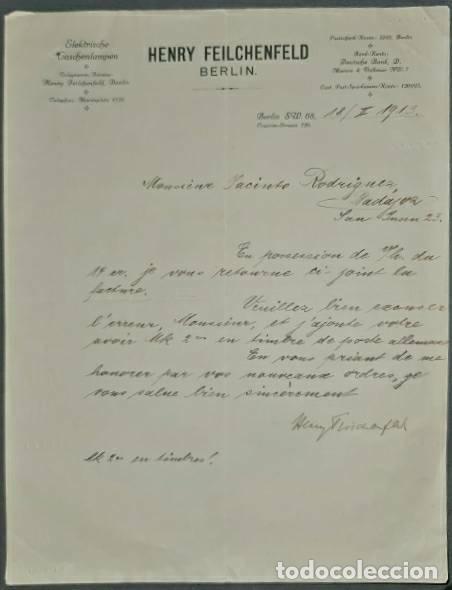 Elektrische
Taschenlampen
Telegramm-Adresse:
Henry Feilchenfeld, Berlin
Telephon: Moritzplatz
HENRY FEILCHENFELD
BERLIN.
Postscheck-Konto: Berlin
Bank-Konto:
Deutsche Bank, D.
Berlin SW. 68, 18/II 1913.
Monsieur Jacinto Rodriguez,
Badajoz
San Juan 23.
En possession de v/l. du
14 cr. je vous retourne ci-joint la
facture.
Veuillez bien excuser
l'erreur, Monsieur, et j'ajoute votre
avoir Mk 2 en timbre de poste allemand
En vous priant de me
honorer par vos nouveaux ordres, je
vous salue bien sincèrement
Henry Feilchenfeld
Mk 2 en timbres!
todocoleccion